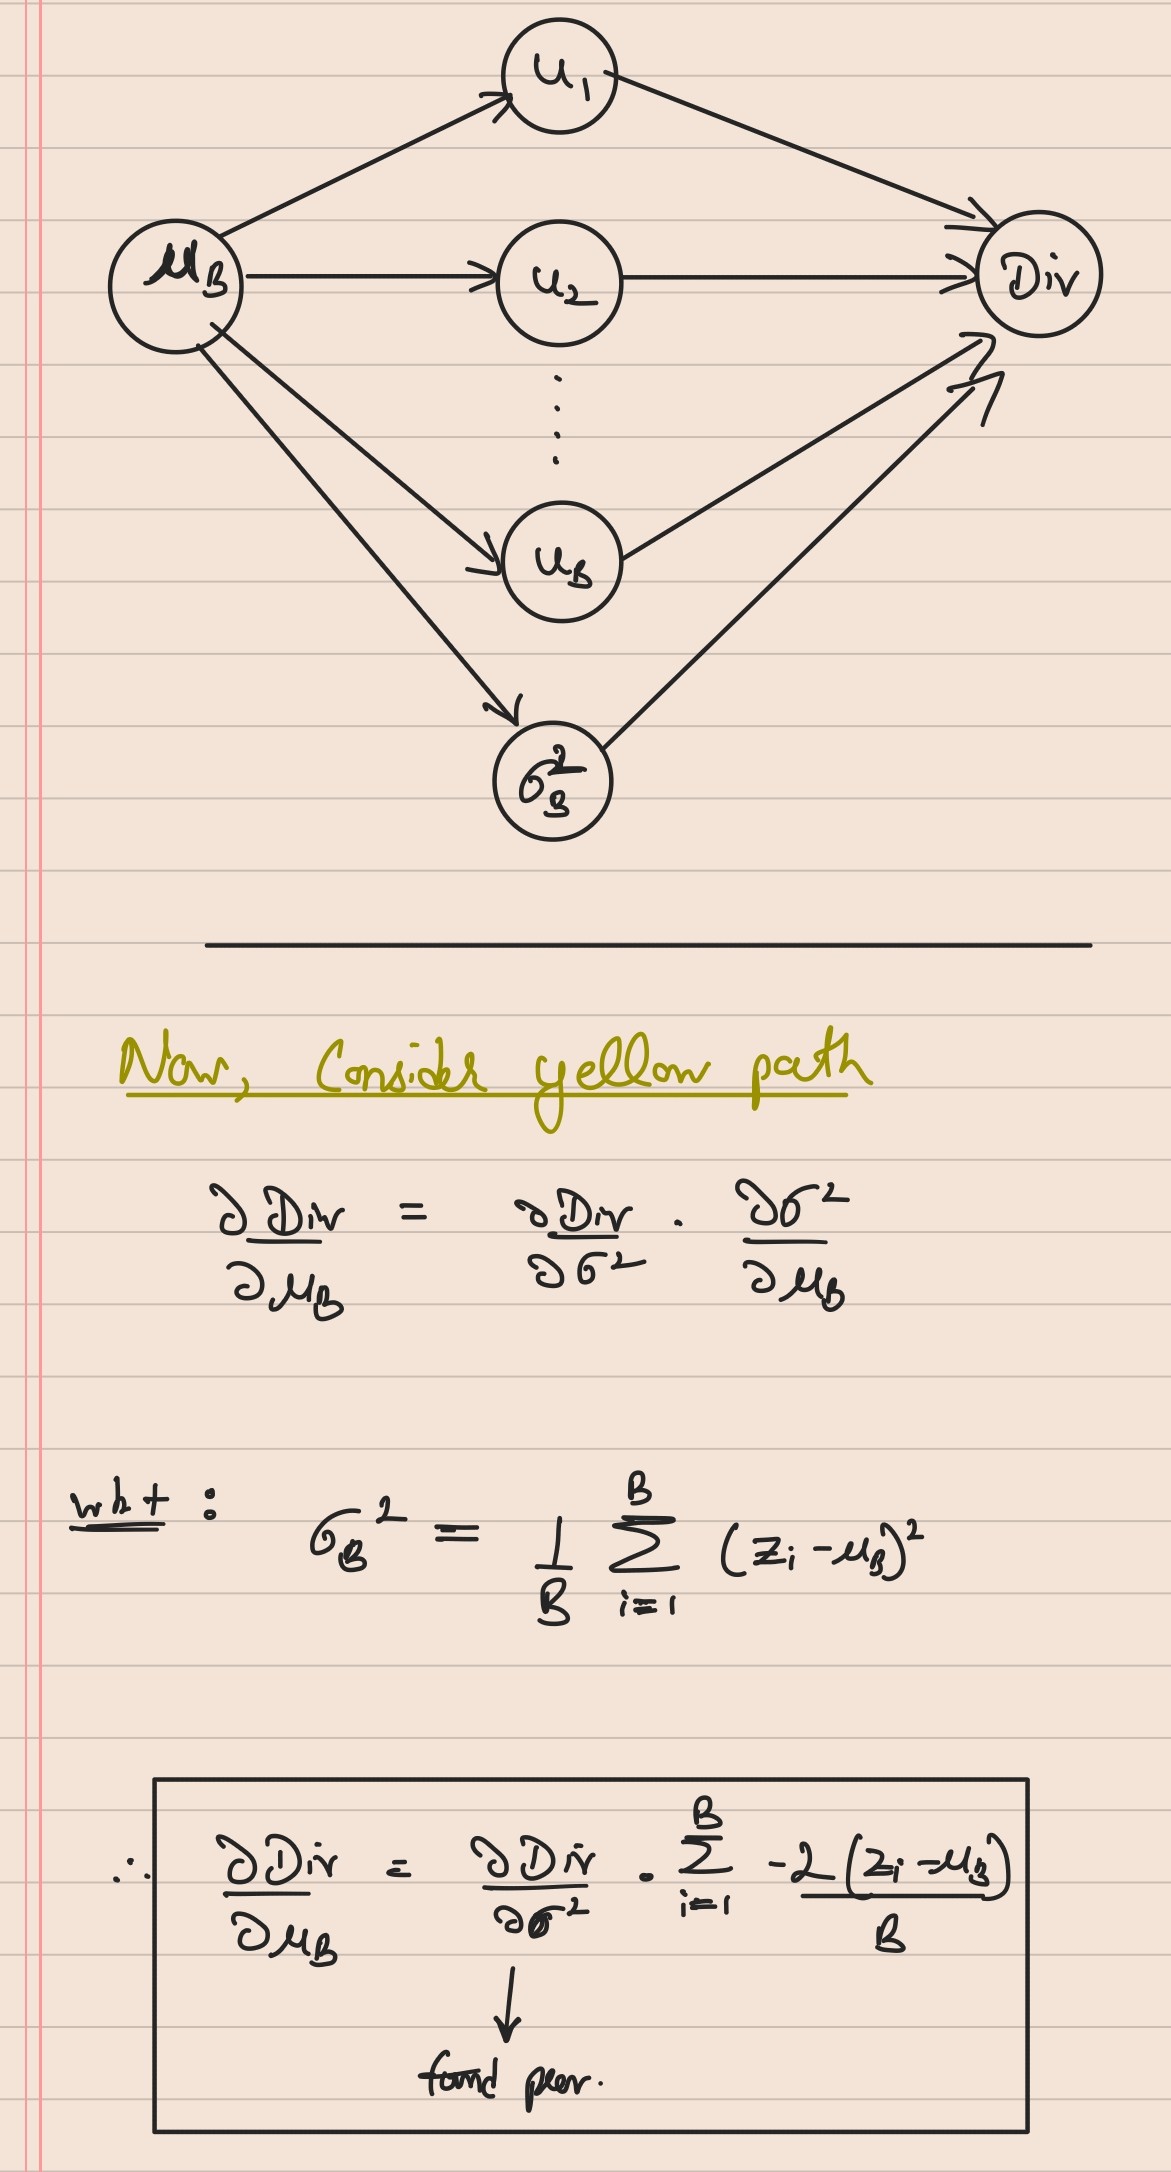 u₁
μ_B u₂ Div
u_B
σ_B²
Now, Consider yellow path
∂Div/∂μ_B = ∂Div/∂σ² · ∂σ²/∂μ_B
wkt : σ_B² = 1/B Σ_{i=1}^{B} (z_i - μ_B)²
∴ ∂Div/∂μ_B = ∂Div/∂σ² · Σ_{i=1}^{B} -2(z_i - μ_B)/B
found prev.